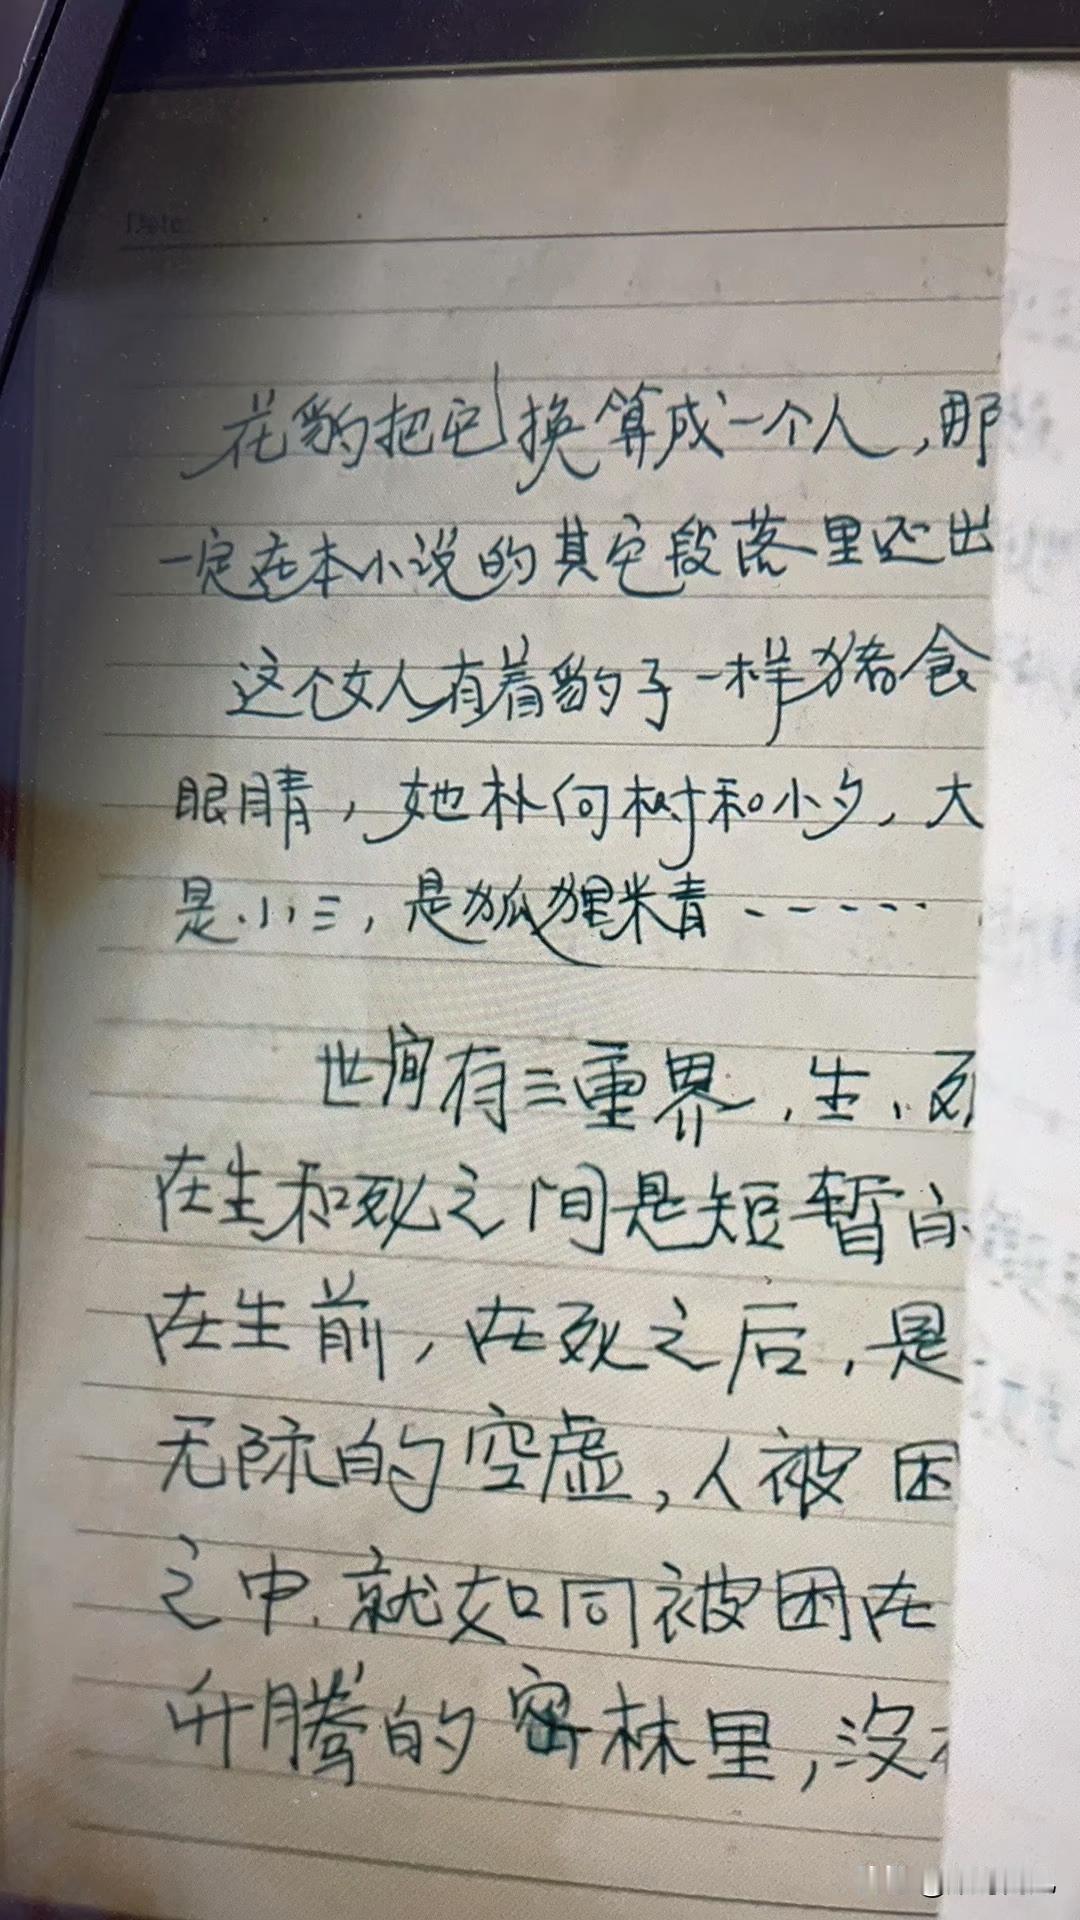 Date
花豹把它换算成一个人，那
一定在本小说的其它段落里还出
这个女人有着豹子一样猪食
眼睛，她朴向树和小夕，大
是小三，是狐狸米青······
世间有三重界，生、死
在生和死之间是短暂的
在生前，在死之后，是
无际的空虚，人被困
之中，就如同被困在
升腾的密林里，没